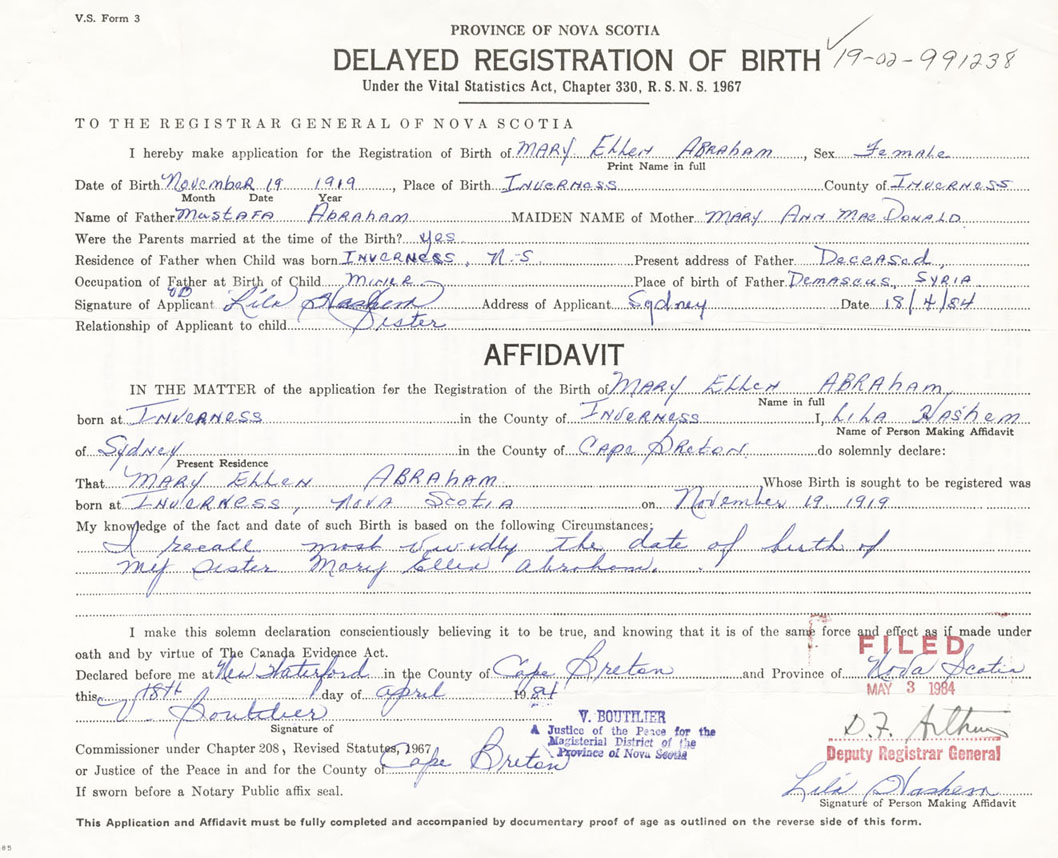 V.S. Form 3
PROVINCE OF NOVA SCOTIA
DELAYED REGISTRATION OF BIRTH 19-02-991238
Under the Vital Statistics Act, Chapter 330, R.S.N.S. 1967
TO THE REGISTRAR GENERAL OF NOVA SCOTIA
I hereby make application for the Registration of Birth of MARY EllEN ABRAHAM, Sex Female
Print Name in full
Date of Birth November 19 1919, Place of Birth INVERNESS County of INVERNESS
Month Date Year
Name of Father MUSTAFA ABRAHAM MAIDEN NAME of Mother MARY ANN MACDONALD
Were the Parents married at the time of the Birth? yes
Residence of Father when Child was born INVERNESS, N.S Present address of Father DECEASED,
Occupation of Father at Birth of Child MINER Place of birth of Father DEMASCUS, SYRIA
Signature of Applicant Lila Hashem Address of Applicant Sydney Date 18/4/84
Relationship of Applicant to child Sister
AFFIDAVIT
IN THE MATTER of the application for the Registration of the Birth of MARY EllEN ABRAHAM,
Name in full
born at INVERNESS in the County of INVERNESS I, LILA HASHEM
Name of Person Making Affidavit
of Sydney in the County of CAPE BRETON do solemnly declare:
Present Residence
That MARY EllEN ABRAHAM Whose Birth is sought to be registered was
born at INVERNESS, NOVA SCOTIA on November 19, 1919
My knowledge of the fact and date of such Birth is based on the following Circumstances:
I recall most vividly the date of birth of
my sister Mary Ellen Abraham.
I make this solemn declaration conscientiously believing it to be true, and knowing that it is of the same force and effect as if made under
FILED
oath and by virtue of The Canada Evidence Act.
Declared before me at New Waterford in the County of Cape Breton and Province of Nova Scotia
this 18th day of April 1984
MAY 3 1984
V. Boutilier
Signature of
V. BOUTILIER
A Justice of the Peace for the
Magisterial District of the
Province of Nova Scotia
D.F. Arthur
Deputy Registrar General
Commissioner under Chapter 208, Revised Statutes, 1967
or Justice of the Peace in and for the County of Cape Breton
If sworn before a Notary Public affix seal.
Lila Hashem
Signature of Person Making Affidavit
This Application and Affidavit must be fully completed and accompanied by documentary proof of age as outlined on the reverse side of this form.
85